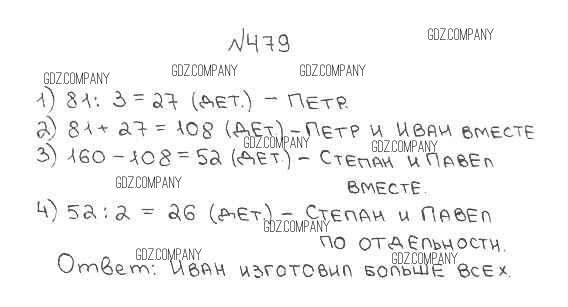 №479
GDZ.COMPANY
GDZ.COMPANY
GDZ.COMPANY
GDZ.COMPANY
1) 81 : 3 = 27 (ДЕТ.) – ПЕТР.
2) 81 + 27 = 108 (ДЕТ) – ПЕТР И ИВАН ВМЕСТЕ
GDZ.COMPANY
GDZ.COMPANY
3) 160 – 108 = 52 (ДЕТ.) – СТЕПАН И ПАВЕЛ
ВМЕСТЕ.
GDZ.COMPANY
4) 52 : 2 = 26 (ДЕТ.) – СТЕПАН И ПАВЕЛ
GDZ.COMPANY
ПО ОТДЕЛЬНОСТИ.
GDZ.COMPANY
GDZ.COMPANY
Ответ: ИВАН ИЗГОТОВИЛ БОЛЬШЕ ВСЕХ.